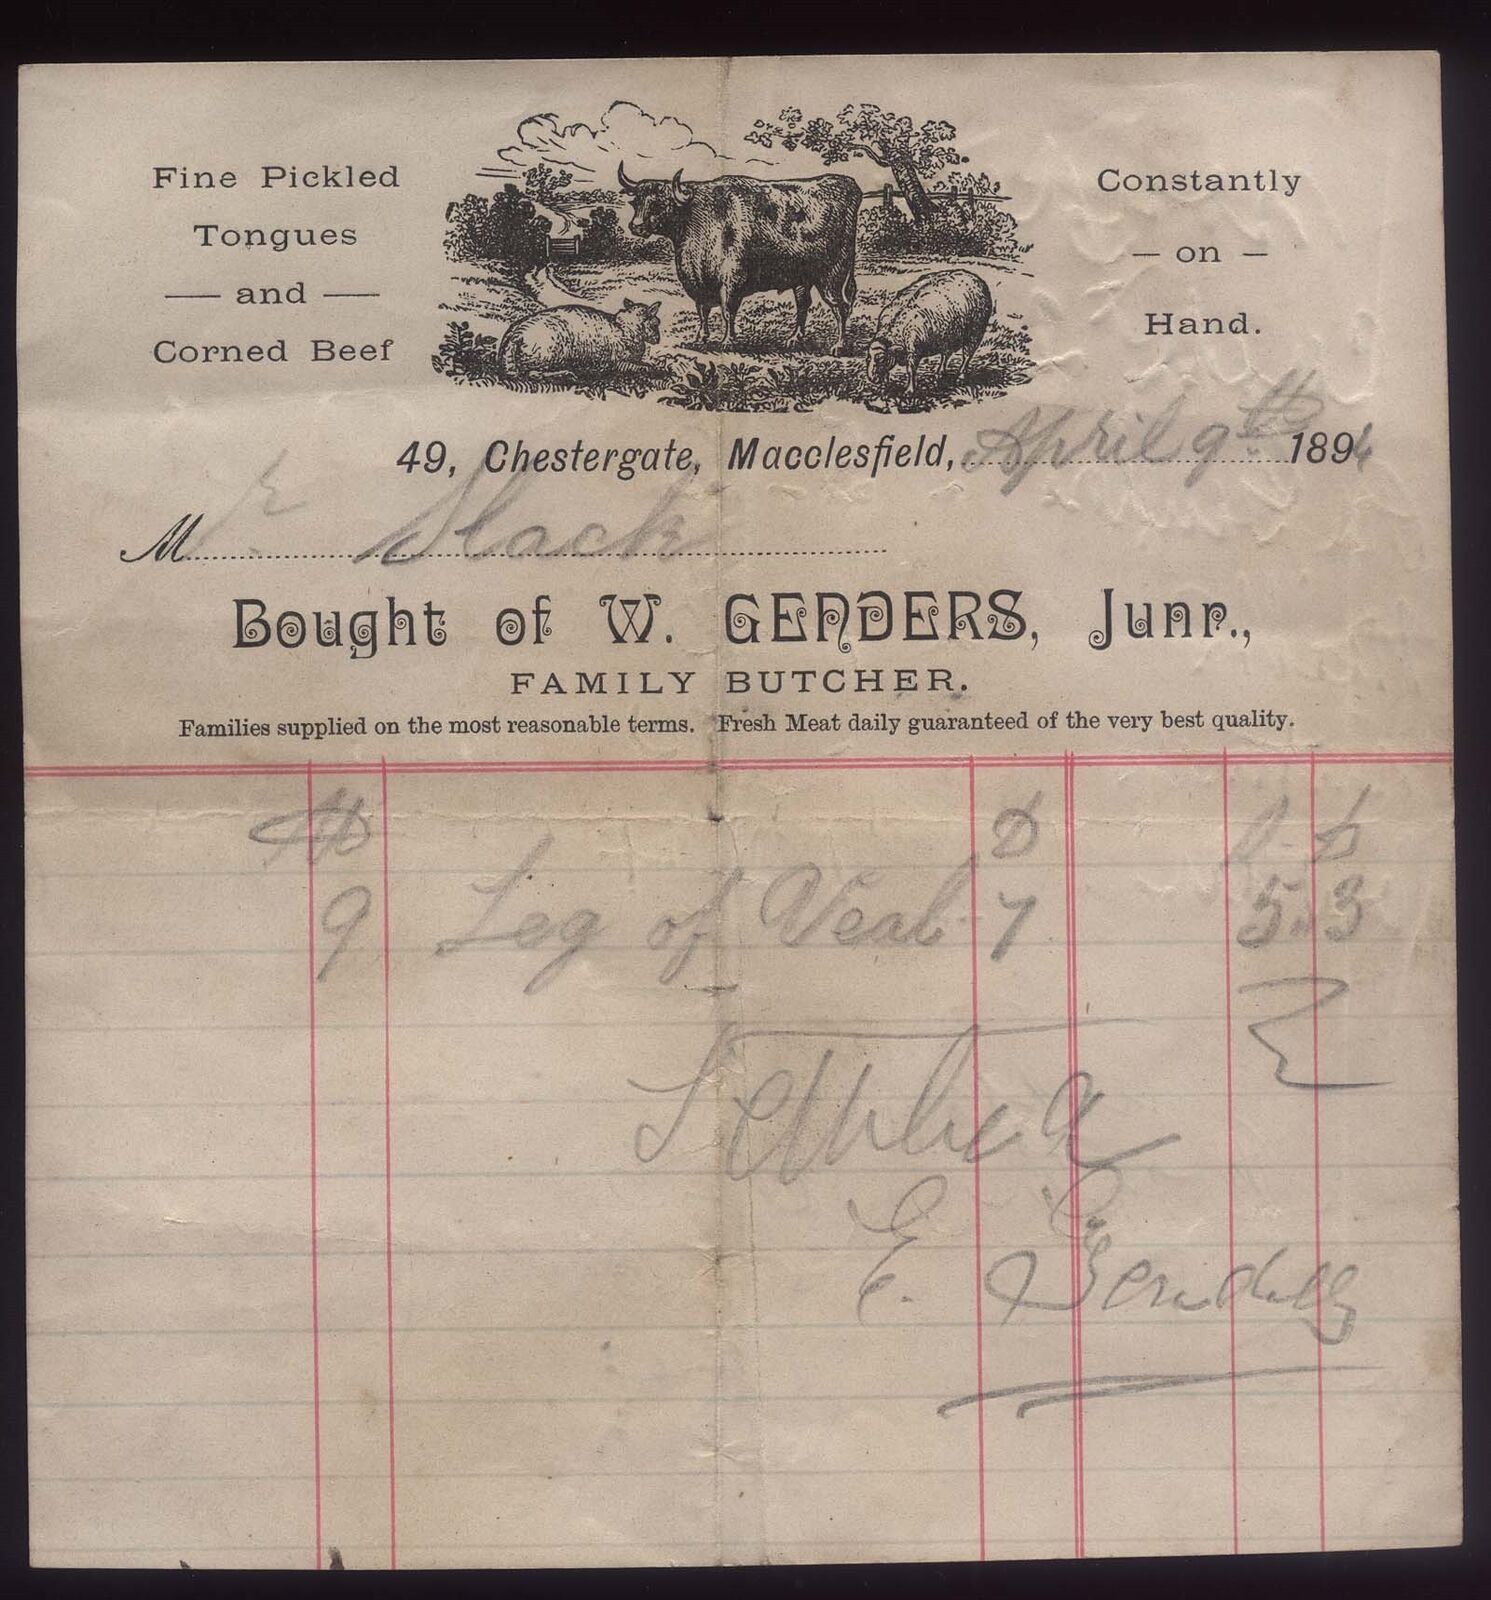 Fine Pickled
Tongues
— and —
Corned Beef
Constantly
— on —
Hand.
49, Chestergate, Macclesfield, April 9th 1894
Mr Slack
Bought of W. GENDERS, Junr.,
FAMILY BUTCHER.
Families supplied on the most reasonable terms. Fresh Meat daily guaranteed of the very best quality.
D
9 Leg of Veal 7 5 " 3
E.